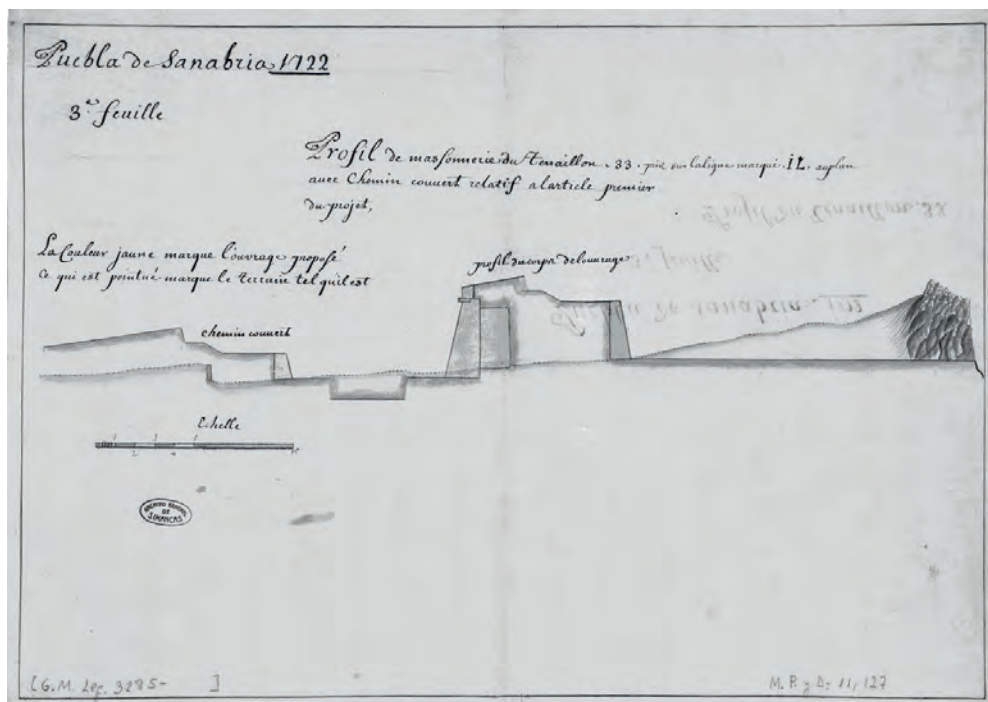 Puebla de Sanabria 1722
3.e feuille
Profil de massonnerie du Tenaillon .33. pris sur laligne marqué .IL. auplan
avec Chemin couvert relatif alarticle premier
du projet,
La Couleur jaune marque l'ouvrage proposé
Ce qui est pointué marque le terrain tel quil est
profil du corps de louvrage
chemin couvert
Echelle
ARCHIVO GENERAL
DE
SIMANCAS
[G.M. Leg. 3285- ]
M. P. y D: 11, 127